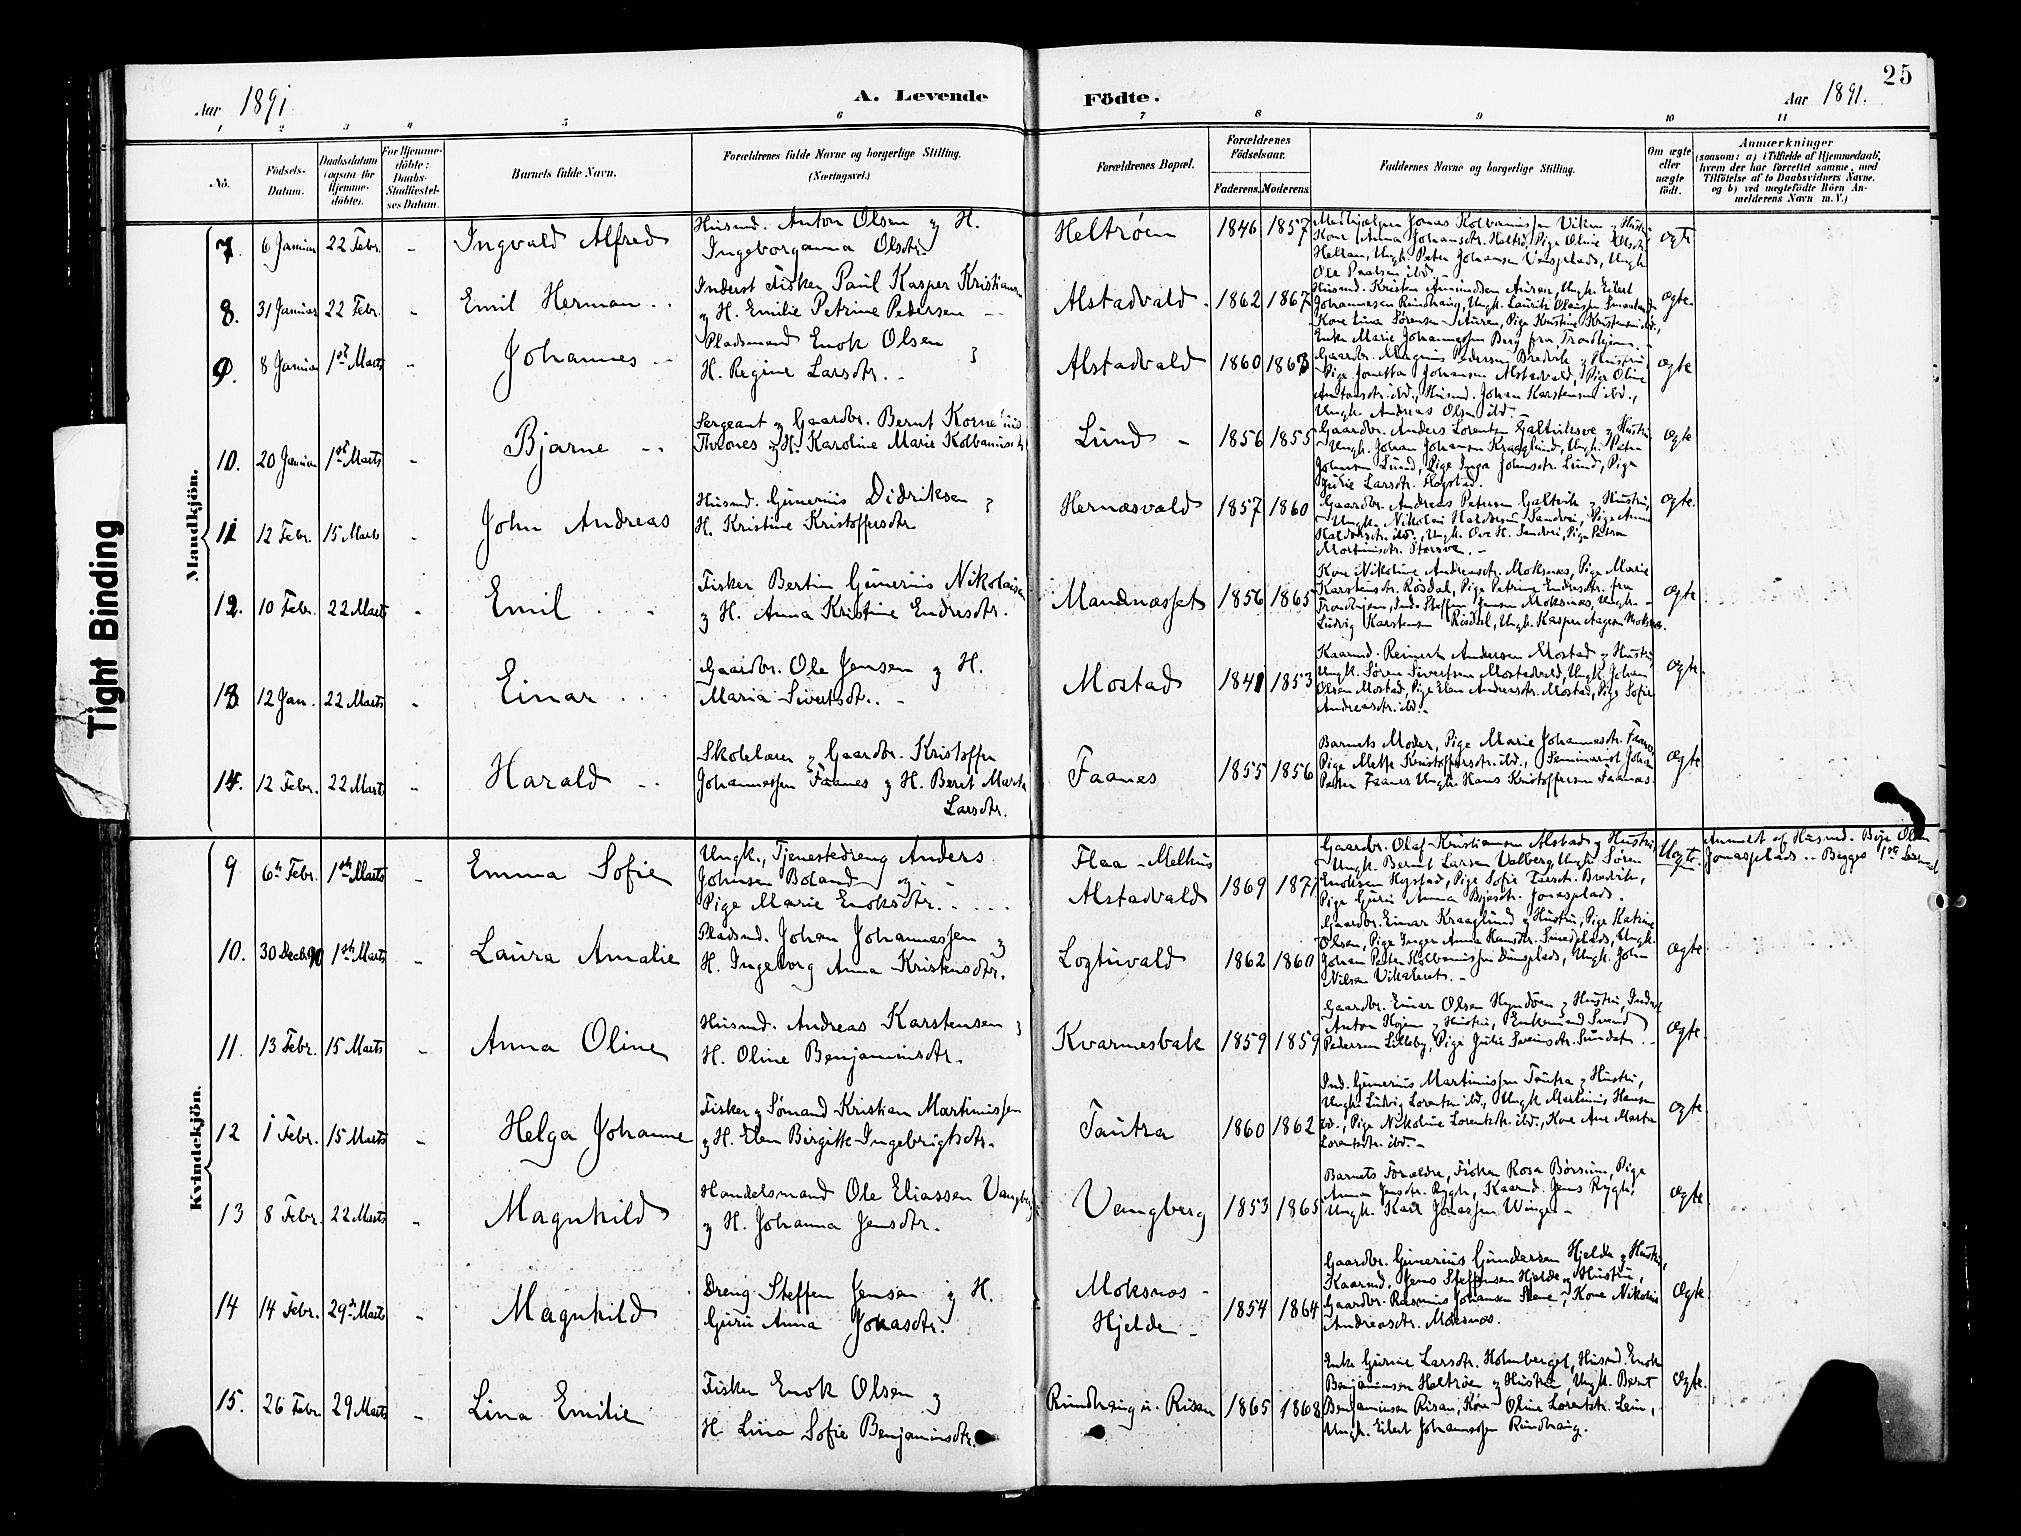 25
Aar 1891
A. Levende Födte.
Aar 1891.
1 2 3 4 5 6 7 8 9 10 11
No.
Födsels-Datum.
Daabsdatum (ogsaa for Hjemme-döbte).
For Hjemme-döbte: Daabs-Stadfæstel-ses Datum.
Barnets fulde Navn.
Forældrenes fulde Navne og borgerlige Stilling. (Næringsvei.)
Forældrenes Bopæl.
Forældrenes Födselsaar.
Faderens. Moderens.
Faddernes Navne og borgerlige Stilling.
Om ægte eller uægte født.
Anmærkninger
(saasom: a) i Tilfælde af Hjemmedaab, hvem der har forrettet samme, med Tilföielse af to Daabsvidners Navne, og b) ved uægtefödte Börn An-melderens Navn m. V.)
Tight Binding
Mandkjön.
7. 6 Januar 22 Febr. - Ingvald Alfred
Husmd. Anton Olsen og H.
Ingeborganna Olsdtr.
Heltrøen 1846 1857
Kone Anna Johansdtr. Heltrø, Pige Oline Olsdtr.
Hellan, Ungk. Peter Johansen Vangplads, Ungk.
Ole Paulsen ibd. -
ægte
8. 31 Januar 22 Febr. - Emil Herman ..
Inderst Fisker Paul Kasper Kristiansen
og H. Emilie Petrine Pedersen --
Alstadvald - 1862 1867
Husmd. Kristen Amundsen Auren, Ungk. Eilert
Johannesen Rundhaug, Ungk. Laurits Olausen
Kone Lina Sørensen Pige Kristine Kristensen ibd.,
Enke Marie Johannessen Berg fra Trondhjem. -
ægte.
9. 8 Januar 1ste Marts - Johannes --
Pladsmand Enok Olsen og
H. Regine Larsdtr. -
Alstadvald 1860 1863
Gaardbr. Magnus Pedersen Bredvik og Hustru,
Pige Jonetta Johansen Alstadvald, Pige Oline
Antonsdtr. ibd., Husmd. Johan Karstensen ibd.,
Ungk. Andreas Olsen ibd. -
ægte
10. 20 Januar 1ste Marts - Bjarne --
Sergeant og Gaardbr. Bernt Kornelius
Thrones og H. Karoline Marie Kolbanusdtr
Lund - 1856 1855
Gaardbr. Anders Lorentsen og Hustru
Ungk. Johan Johansen Kraaglund, Ungk. Peter
Johnsen Lund, Pige Inga Johnsdtr. Lund, Pige
Julie Larsdtr. Hogstad.
ægte
11. 12 Febr. 15 Marts - John Andreas
Husmd. Gunerius Didriksen og
H. Kristine Kristoffersdtr
Hernæsvald 1857 1860
Gaardbr. Andreas Petersen Galtvik og Hustru,
Ungk. Nikolai Haldorsen Sandvei, Pige Anna
Haldorsdtr. ibd., Ungk. Ove H. Sandvei, Pige Petra
Martinsdtr. Storsve. -
ægte.
12. 10 Febr. 22 Marts - Emil . -
Fisker Bertin Gunerius Nikolaisen
og H. Anna Kristine Endresdtr.
Mandnæsset 1856 1865
Kone Nikoline Andreasdtr. Moksnes, Pige Marie
Karstensdtr. Rösdal, Pige Petrine Endresdtr. fra
Trondhjem, Ind. Steffen Jensen Moksnes, Ungk.
Ludvig Karstensen Rösdal, Ungk. Kasper Aagesen Moksnes.
ægte.
13. 12 Jan. 22 Marts - Einar ...
Gaardbr. Ole Jensen og H.
Maria Sivertsdtr. -
Mostad 1841 1853
Kaarmd. Reinert Andersen Mostad og Hustru,
Ungk. Søren Sivertsen Mostadvald, Ungk. Johan
Olsen Mostad, Pige Elen Andreasdtr. Mostad, Pige Sofie
Andreasdtr. ibd. -
ægte.
14. 12 Febr. 22 Marts - Harald --
Skolelærer og Gaardbr. Kristoffer
Johannessen Faanes og H. Beret Marta
Larsdtr.
Faanes 1855 1856
Barnets Moder, Pige Marie Johannesdtr. Faanes
Pige Mette Kristoffersdtr. ibd., Seminarist Johan
Petter Faanes Ungk. Hans Kristoffersen Faanes.
ægte.
Kvindekjön.
9 6te Febr. 1ste Marts - Emma Sofie
Ungk., Tjenestedreng Anders
Johnsen Boland og - -
Pige Marie Enoksdtr. ....
Flaa - Melhus
Alstadvald 1869 1871
Gaardbr. Olaf Kristiansen Alstad og Hustru
Ungk. Bernt Larsen Valberg Ungk. Søren
Enoksen Hogstad, Pige Sofie Larsdtr. Bredvik,
Pige Guru Anna Jonasplads.
Uægte
Anmeldt af Husmd. Olsen
Jonasplads .. Begges 1ste
10. 30 Decbr. 90 1ste Marts - Laura Amalie
Pladsmd. Johan Johannessen og
H. Ingeborg Anna Kristensdtr.
Logtuvald 1862 1860
Gaardbr. Einar Kraaglund og Hustru, Pige Katrine
Olsen, Pige Inger Anna Hansdtr. Smedplads, Ungk.
Johan Peter Kolbanussen Ungk. John
Nilsen -
ægte
11. 13 Febr. 15 Marts - Anna Oline
Husmd. Andreas Karstensen og
H. Oline Benjaminsdtr.
Kvarmesbak 1859 1859
Gaardbr. Einar Olsen og Hustru, Inderst
Anton Hojem og Hustru, Enkemand Svend
Pedersen Lilleby, Pige Julie Svensdtr. Sundet. -
ægte.
12 1 Febr. 15 Marts - Helga Johanne
Fisker og Sømand Kristian Martinussen
og H. Elen Birgitte Ingebrigtsdtr.
Tautra 1860 1862
Ind. Gunerius Martinussen Tautra og Hustru,
Ungk. Ludvig Lorentsen ibd., Ungk. Martinus Hansen
ibd., Pige Nikoline Lorentsdtr. ibd., Kone Ane Marta
Lorentsdtr. ibd. -
ægte.
13 8 Febr. 22 Marts - Magnhild
Handelsmand Ole Eliassen Vangberg
og H. Johanna Jensdtr.
Vangberg 1853 1865
Barnets Forældre, Frøken Rosa Børsum, Pige
Anna Jensdtr. Rygh, Kaarmd. Jens Rygh,
Ungk. Karl Jonassen Winge. -
ægte.
14 14 Febr. 29de Marts - Magnhild
Dreng Steffen Jensen og H.
Guru Anna Jonasdtr.
Moksnæs -
Hjelde - 1854 1864
Gaardbr. Gunerius Gundersen Hjelde og Hustru,
Kaarmd. Jens Steffensen Hjelde og Hustru,
Gaardbr. Rasmus Johansen Stene, Kone Nikoline
Andreasdtr. Moksnæs.
Ægte.
15. 26 Febr 29 Marts - Lina Emilie
Fisker Enok Olsen og
H. Lina Sofie Benjaminsdtr.
Rundhaug u. Risan 1865 1868
Enke Gurine Larsdtr. Holmberget, Husmd. Enok
Benjaminsen Heltrøen og Hustru, Ungk. Bernt
Benjaminsen Risan, Kone Oline Lorentsdtr. Lein,
Ungk. Eilert Johannessen Rundhaug.
Ægte.